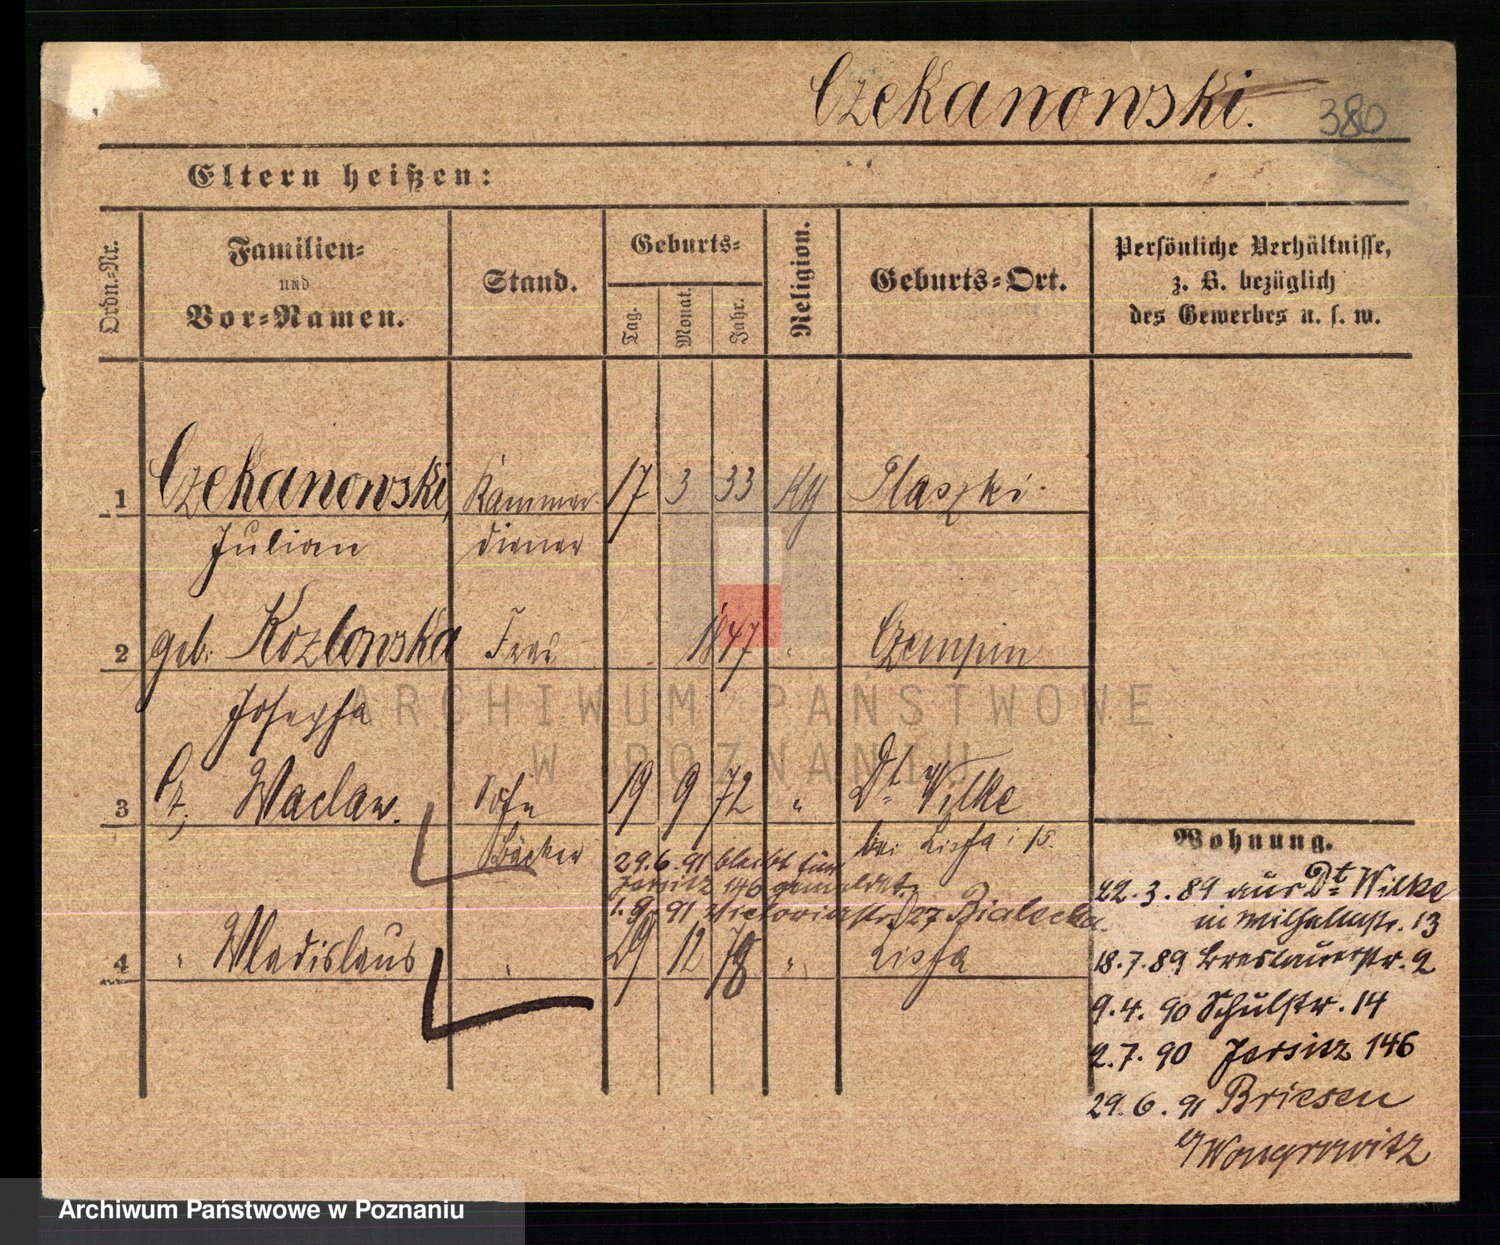 Czekanowski.
380
Eltern heißen:
Ordn.-Nr.
Familien-
und
Vor-Namen.
Stand.
Geburts-
Tag.
Monat.
Jahr.
Religion.
Geburts-Ort.
Persönliche Verhältnisse,
z. B. bezüglich
des Gewerbes u. s. w.
1 Czekanowski, Kammer- 17 3 33 Plaszki.
Julian diener
2 geb. Kozlowska Frau 1847 " Czempin
Josepha
3 Cz, Waclaw. Sohn 19 9 72 " Dt. Wilke
Bäcker bei Lissa i/S.
29.6.91 bleibt für
Jersitz 146 gemeldet.
1.9.91 Victoriastr. 27 Bialecka.
4 " Wladislaus " 29 12 78 " Lissa
Wohnung.
22.3.89 aus Dt. Wilke
in Wilhelmstr. 13
18.7.89 Breslauerstr. 9
9.4.90 Schulstr. 14
2.7.90 Jersitz 146
29.6.91 Briesen
b/Wongrowitz
ARCHIWUM PAŃSTWOWE
W POZNANIU
Archiwum Państwowe w Poznaniu